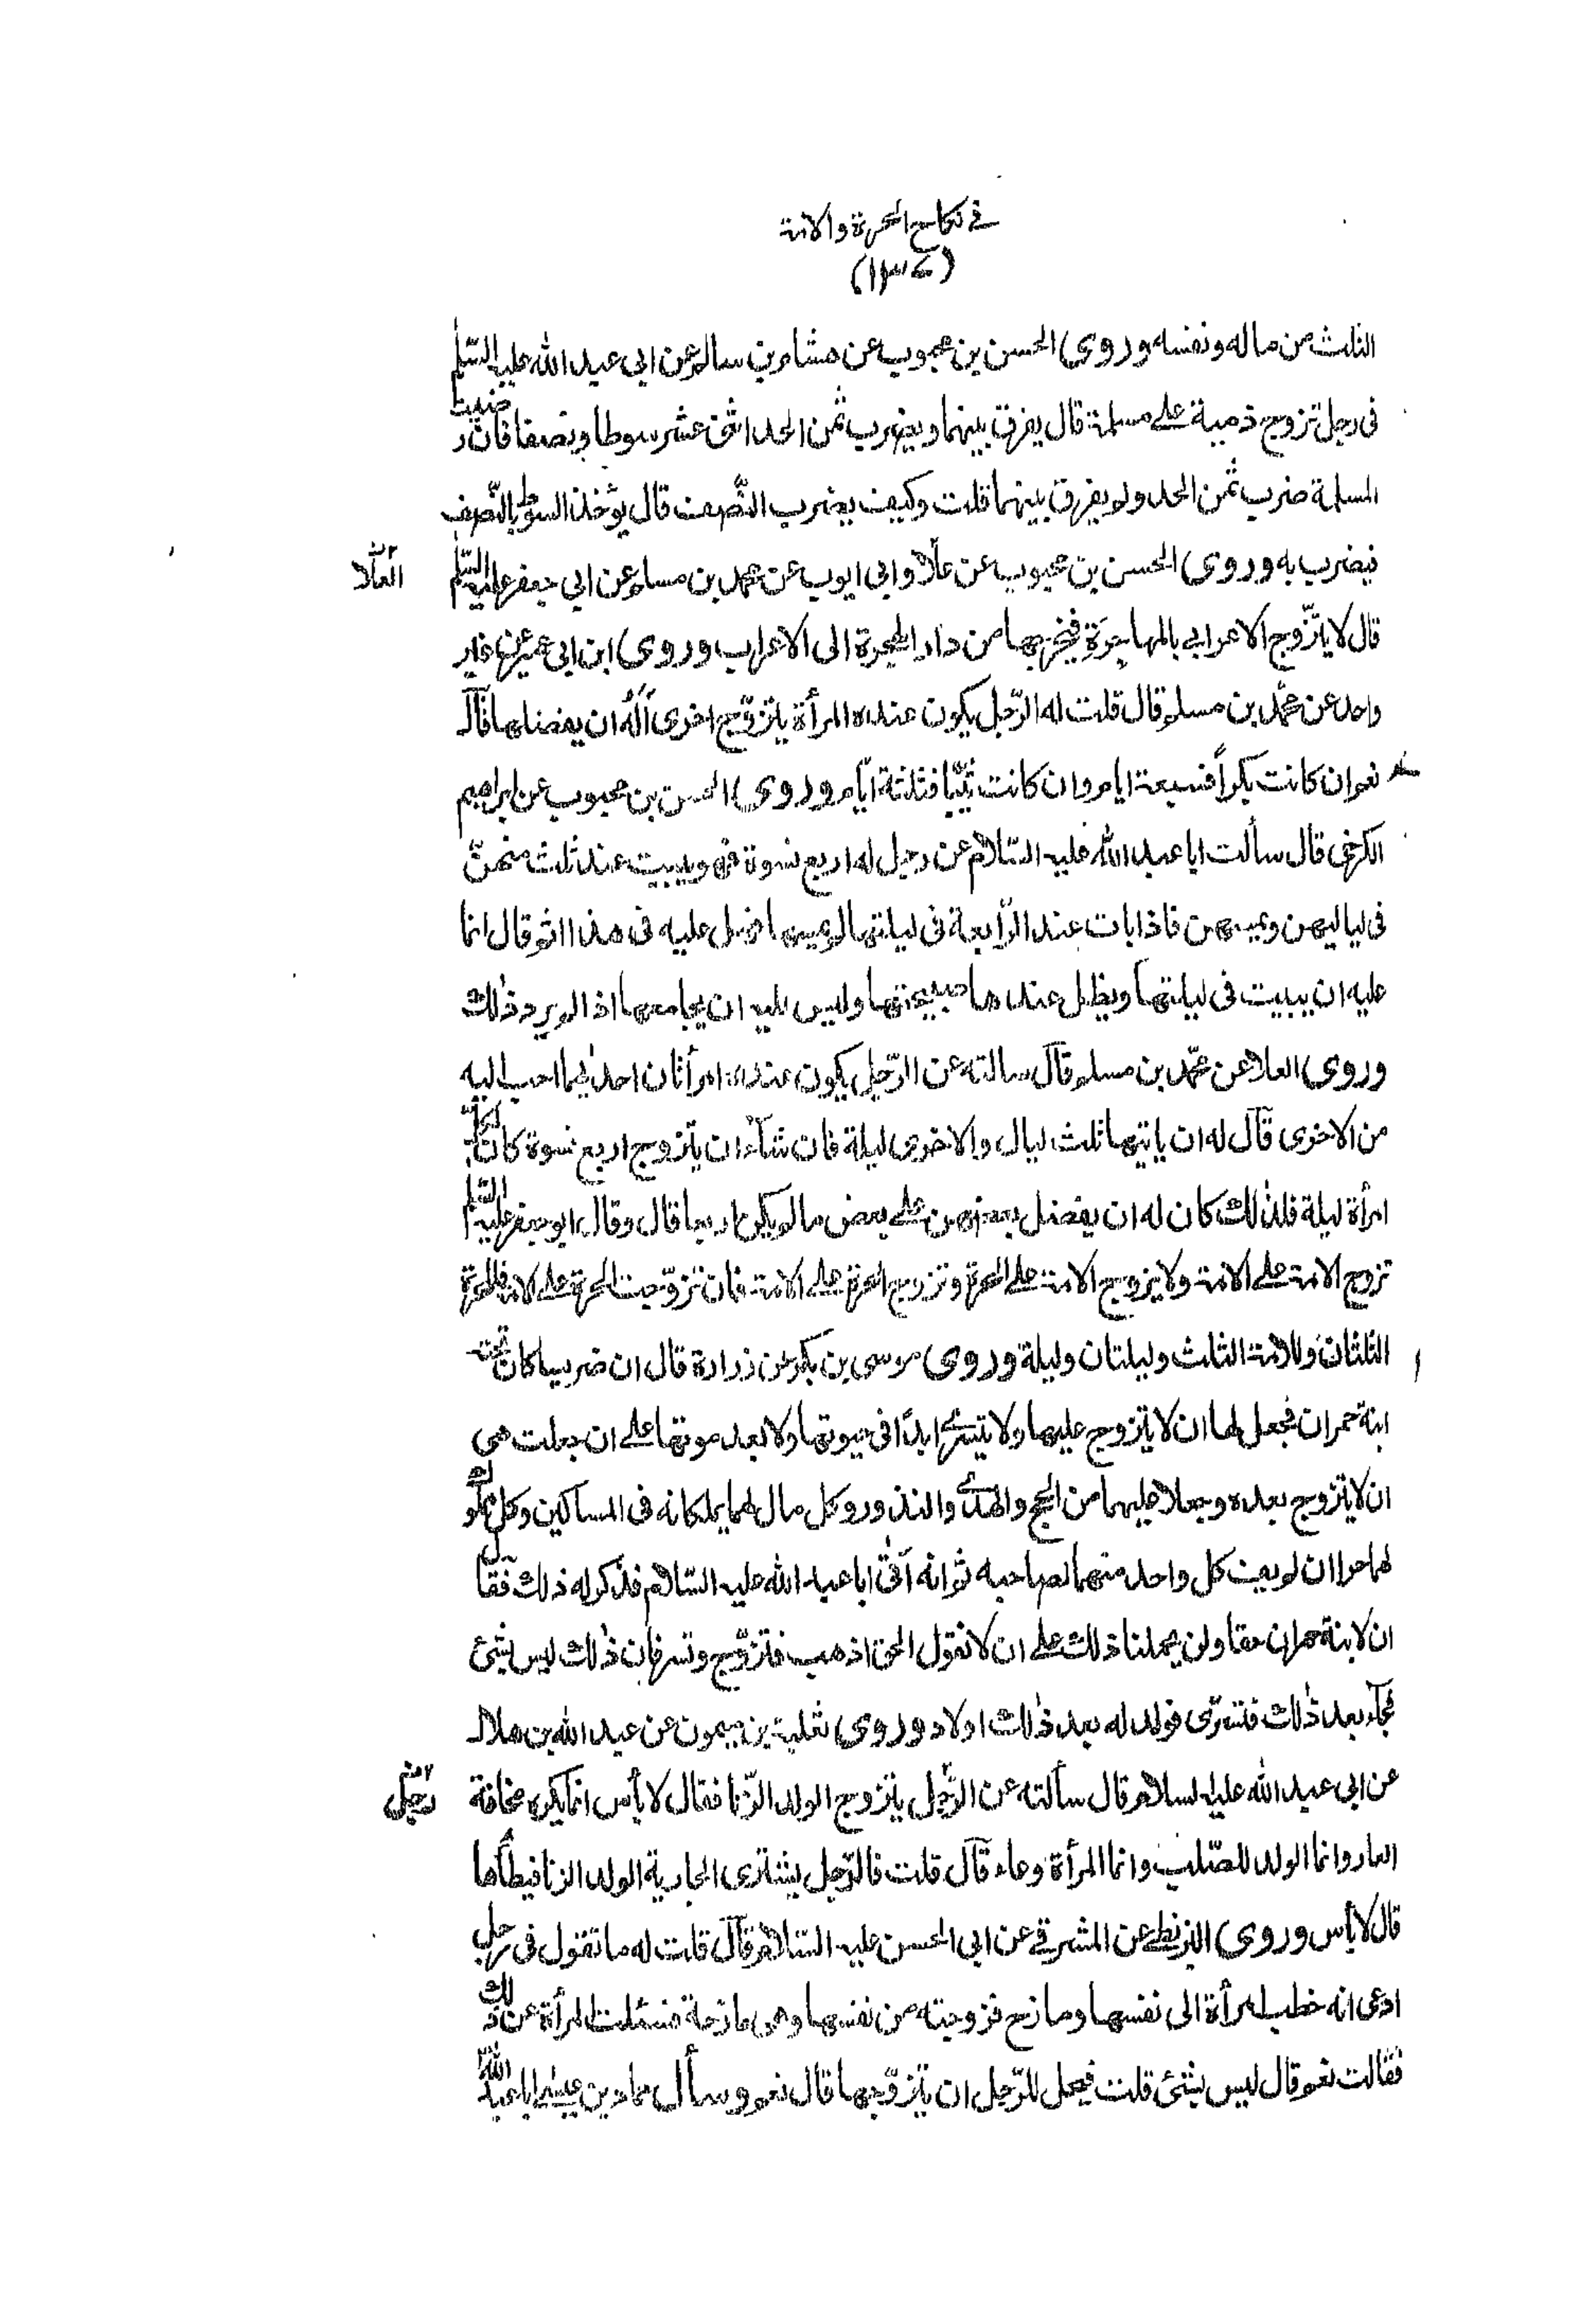 في نكاح الحرة والامة
(١٣٧)
الثلث من ماله ونفسه وروى الحسن بن محبوب عن هشام بن سالم عن ابي عبد الله عليه السلم
فى رجل تزوج ذمية على مسلمة قال يفرق بينهما ويضرب ثمن الحد اثنى عشر سوطا ونصفا فان رضيت
المسلمة ضرب ثمن الحد ولم يفرق بينهما قلت وكيف يضرب النصف قال يؤخذ السوط بالنصف
فيضرب به وروى الحسن بن محبوب عن علاء وابى ايوب عن محمد بن مسلم عن ابي جعفر عليه السلم
العلا
قال لا يتزوج الاعرابى بالمهاجرة فيخرجها من دار الهجرة الى الاعراب وروى ابن ابى عمير عن غير
واحد عن محمد بن مسلم قال قلت له الرجل يكون عنده المرأة يتزوج اخرى اله ان يفضلها قال
نعم ان كانت بكراً فسبعة ايام وان كانت ثيبا فثلثة ايام وروى الحسن بن محبوب عن ابراهيم
الكرخى قال سألت ابا عبد الله عليه السلام عن رجل له اربع نسوة فهو يبيت عند ثلث منهن
فى لياليهن ويمسهن فاذا بات عند الرابعة فى ليلتها لم يمسها فهل عليه فى هذا اثم قال انما
عليه ان يبيت فى ليلتها ويظل عندها صبيحتها وليس عليه ان يجامعها اذا لم يرد ذلك
وروى العلا عن محمد بن مسلم قال سالته عن الرجل يكون عنده امرأتان احدىهما احب اليه
من الاخرى قال له ان ياتيها ثلث ليال والاخرى ليلة فان شاء ان يتزوج اربع نسوة كان لكل
امرأة ليلة فلذلك كان له ان يفضل بعضهن على بعض ما لم يكن اربعا قال وقال ابو جعفر عليه السلم
تزوج الامة على الامة ولا يزوج الامة على الحرة وتزوج الحرة على الامة فان تزوجت الحرة على الامة فللحرة
الثلثان وللامة الثلث وليلتان وليلة وروى موسى بن بكر عن زرارة قال ان ضريسا كان تحته
ابنة حمران فجعل لها ان لا يتزوج عليها ولا يتسرى ابدًا فى حيوتها ولا بعد موتها على ان جعلت هى
ان لا يتزوج بعده وجعلا عليهما من الحج والهدى والنذور وكل مال لهما يملكانه فى المساكين وكل مملوك
لهما حرا ان لم يف كل واحد منهما لصاحبه ثم انه اتى ابا عبد الله عليه السلام فذكر له ذلك فقال
ان لابنة حمران حقا ولن يحملنا ذلك على ان لا نقول الحق اذهب فتزوج وتسر فان ذلك ليس بشئ
فجاء بعد ذلك فتسرى فولد له بعد ذلك اولاد وروى ثعلبة بن ميمون عن عبد الله بن هلال
عن ابى عبد الله عليه السلام قال سألته عن الرجل يتزوج الولد الزنا فقال لا بأس انما يكره مخافة
رجل
العار وانما الولد للصلب وانما المرأة وعاء قال قلت فالرجل يشترى الجارية الولد الزنا فيطأها
قال لا بأس وروى البزنطى عن المشرقى عن ابى الحسن عليه السلام قال قلت له ما تقول فى رجل
ادعى انه خطب امرأة الى نفسها ومازح فزوجته من نفسها وهى مازحة فسئلت المرأة عن ذلك
فقالت نعم قال ليس بشئ قلت فيحل للرجل ان يتزوجها قال نعم وسأل حماد بن عيسى ابا عبد الله